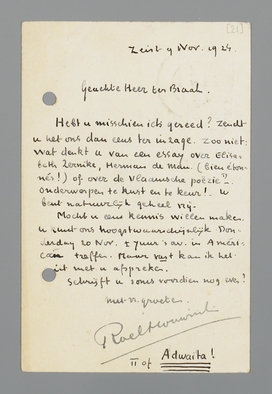 [21]
Zeist 9 Nov. 1924.
Geachte Heer ter Braak.
Hebt u misschien iets gereed? Zendt
u het ons dan eens ter inzage. Zoo niet:
wat denkt u van een essay over Elisa-
beth Zernike, Herman de Man. (bien éton-
nés!) of over de Vlaamsche poëzie?
Onderwerpen te kust en te keur! U
bent natuurlijk geheel vrij.
Mocht u eens kennis willen maken.
u kunt ons hoogstwaarschijnlijk Don-
derdag 20 Nov. 7 uur 's av. in Améri-
cain treffen. Maar vast kan ik het
niet met u afspreken.
Schrijft u soms voordien nog even?
met vr. groeten
Roel Houwink
II of Adwaita!